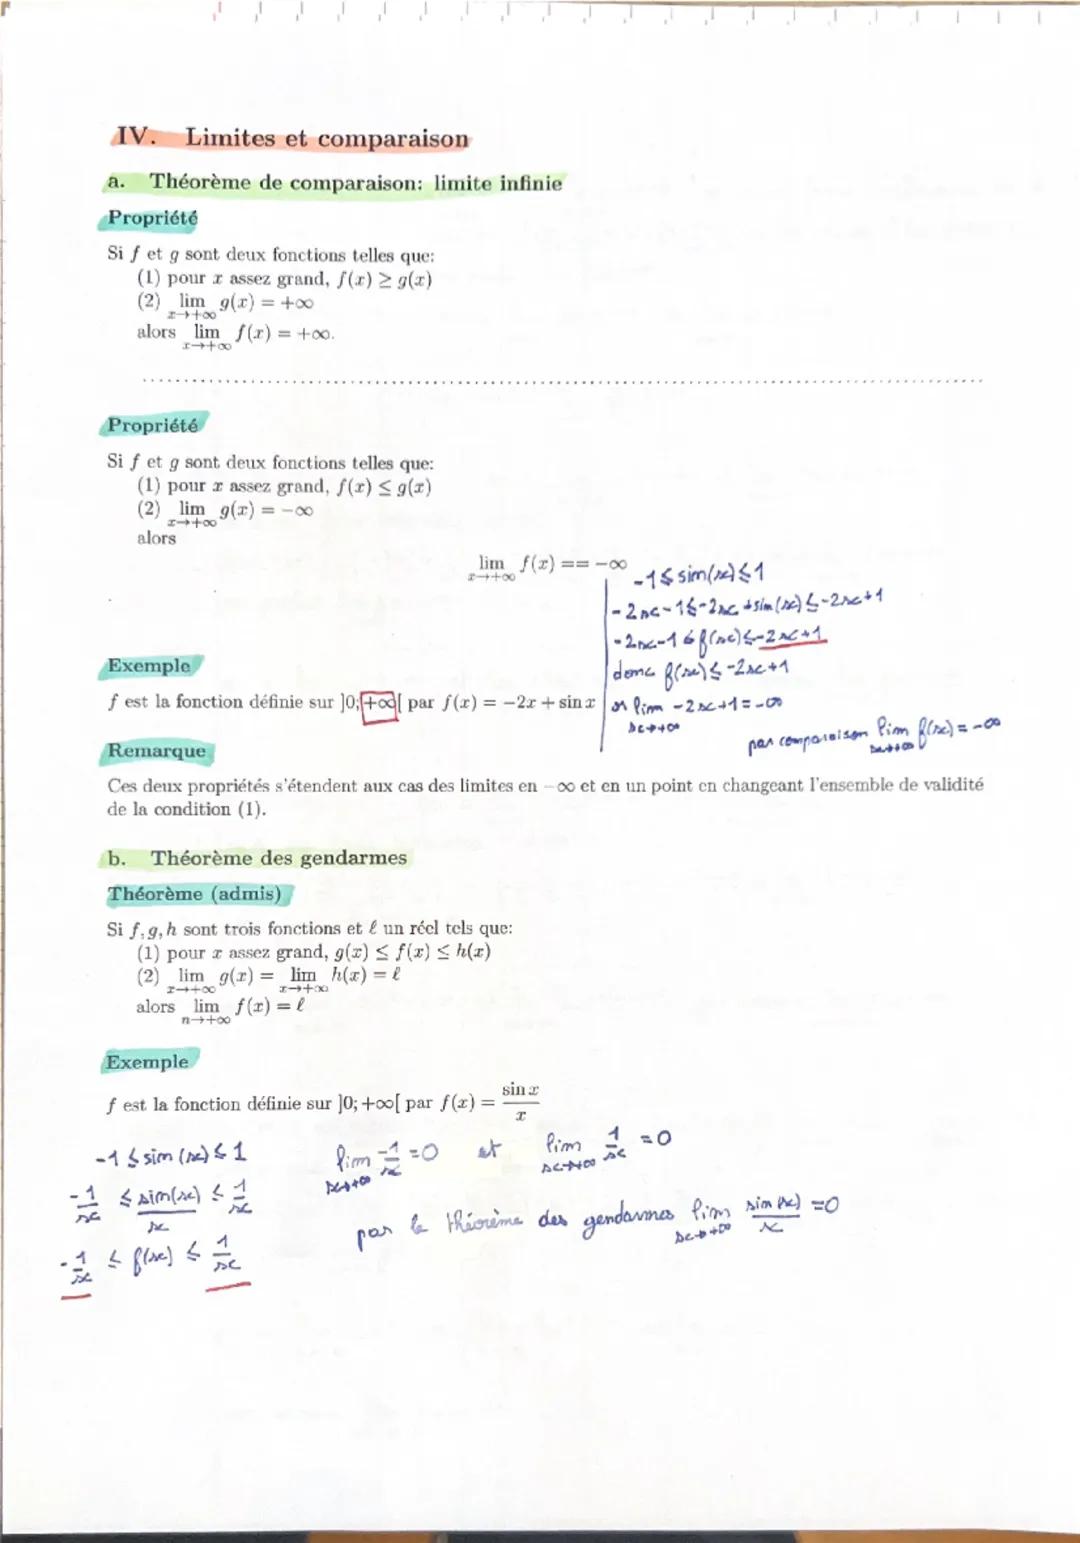 IV. Limites et comparaison
a. Théorème de comparaison: limite infinie
Propriété
Si f et g sont deux fonctions telles que:
(1) pour x assez grand, f(x) ≥ g(x)
(2) lim g(x) = +∞
x→+∞
alors lim f(x) = +∞.
x→+∞
Propriété
Si f et g sont deux fonctions telles que:
(1) pour x assez grand, f(x) ≤ g(x)
(2) lim g(x) = −∞
x→+∞
alors
lim f(x) == −∞
x→+∞
-1 ≤ sin(x) ≤ 1
-2x-1 ≤ -2x + sin(x) ≤ -2x+1
-2x-1 ≤ f(x) ≤ -2x+1
donc f(x) ≤ -2x+1
or lim -2x+1 = -∞
x→+∞
par comparaison lim f(x) = -∞
x→+∞
Exemple
f est la fonction définie sur ]0;+∞[ par f(x) = −2x + sin x
Remarque
Ces deux propriétés s'étendent aux cas des limites en −∞ et en un point en changeant l'ensemble de validité
de la condition (1).
b. Théorème des gendarmes
Théorème (admis)
Si f, g, h sont trois fonctions et ℓ un réel tels que:
(1) pour x assez grand, g(x) ≤ f(x) ≤ h(x)
(2) lim g(x) = lim h(x) = ℓ
x→+∞ x→+∞
alors lim f(x) = ℓ
n→+∞
Exemple
f est la fonction définie sur ]0; +∞[ par f(x) = sin x / x
-1 ≤ sin(x) ≤ 1
-1/x ≤ sin(x)/x ≤ 1/x
-1/x ≤ f(x) ≤ 1/x
lim -1/x = 0 et lim 1/x = 0
x→+∞ x→+∞
par le théorème des gendarmes lim sin(x)/x = 0
x→+∞